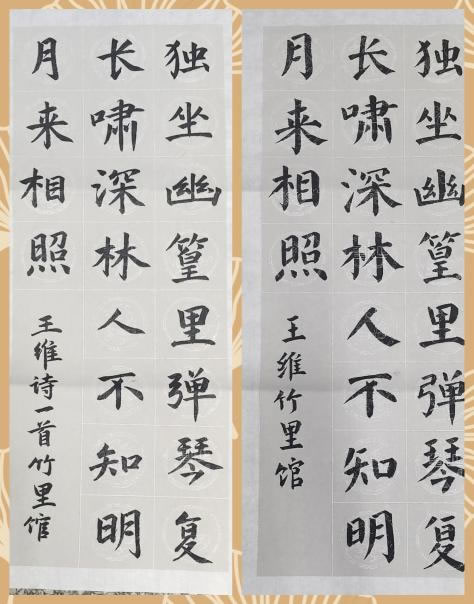 独坐幽篁里弹琴复
长啸深林人不知明
月来相照
王维诗一首竹里馆
独坐幽篁里弹琴复
长啸深林人不知明
月来相照
王维竹里馆